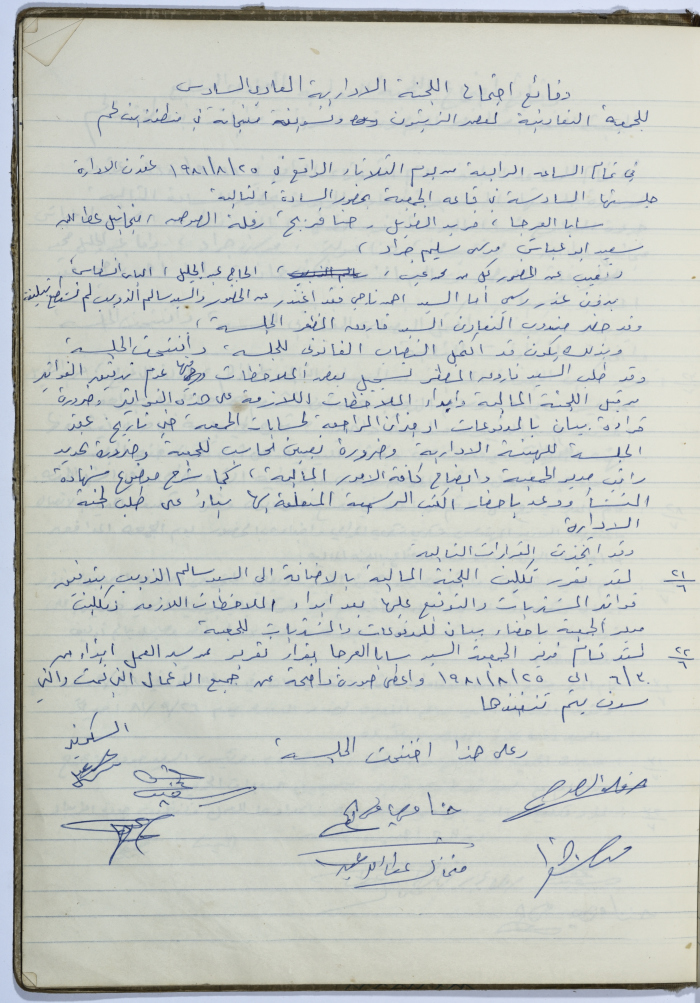 وقائع اجتماع اللجنة الادارية العادي السادس
للجمعية التعاونية لعصر الزيتون وتسويقه منتجاته في منطقة بيت لحم
في تمام الساعه الرابعة من يوم الثلاثاء الواقع في ٢٥/٨/١٩٨١ عقدت الادارة
جلستها السادسة في قاعه الجمعية بحضور السادة التالية
سابا العرجا، فريد الطويل، حنا فريج، رفلة الصوص، ميخائيل عطا الله
سعيد ابو عباش موسى سليم جراد،
وتغيب عن الحضور كل من ، الحاج عبد الجليل،
بدون عذر رسمي أما السيد احمد ناجي فقد اعتذر عن الحضور والسيد سالم الذويب لم نستطع تبليغه
وقد حضر مندوب التعاون السيد فاروق المظفر الجلسة،
وبذلك يكون قد اكتمل النصاب القانوني للجلسة، وأفتتحت الجلسة
وقد طلب السيد فاروق المظفر تسجيل بعض الملاحظات ومنها عدم تدقيق الفواتير
من قبل اللجنة المالية وابداء الملاحظات اللازمة على هذه الفواتير وضرورة
قراءة بيان بالمدفوعات او ميزان المراجعة لحسابات الجمعية حتى تاريخ عقد
الجلسة للهيئة الادارية وضرورة تعيين محاسب للجمعية وضرورة تحديد
راتب مدير الجمعية وايضاح كافة الامور المالية، كما شرح موضوع شهادة
المنشأ ووعد باحضار الكتب الرسمية المتعلقة بها بناء على طلب لجنة
الادارة
وقد اتخذت القرارات التالية
٢١/٦ لقد تقرر تكليف اللجنة المالية بالاضافة الى السيد سالم الذويب بتدقيق
فواتير المشتريات والتوقيع عليها بعد ابداء الملاحظات اللازمه وتكليف
مدير الجمعية باحضار بيان للمدفوعات والمشتريات للجمعية
٢٢/٦ لقد قام مدير الجمعية السيد سابا العرجا بقراءة تقرير عن سير العمل ابتداء من
٣٠/٦ الى ٢٥/٨/١٩٨١ واعطى صورة واضحة عن جميع الاعمال التي تمت والتي
سوف يتم تنفيذها
وعلى هذا اختتمت الجلسة
السكرتير
رفله الصوص
حنا فريج
ميخائيل عطا الله